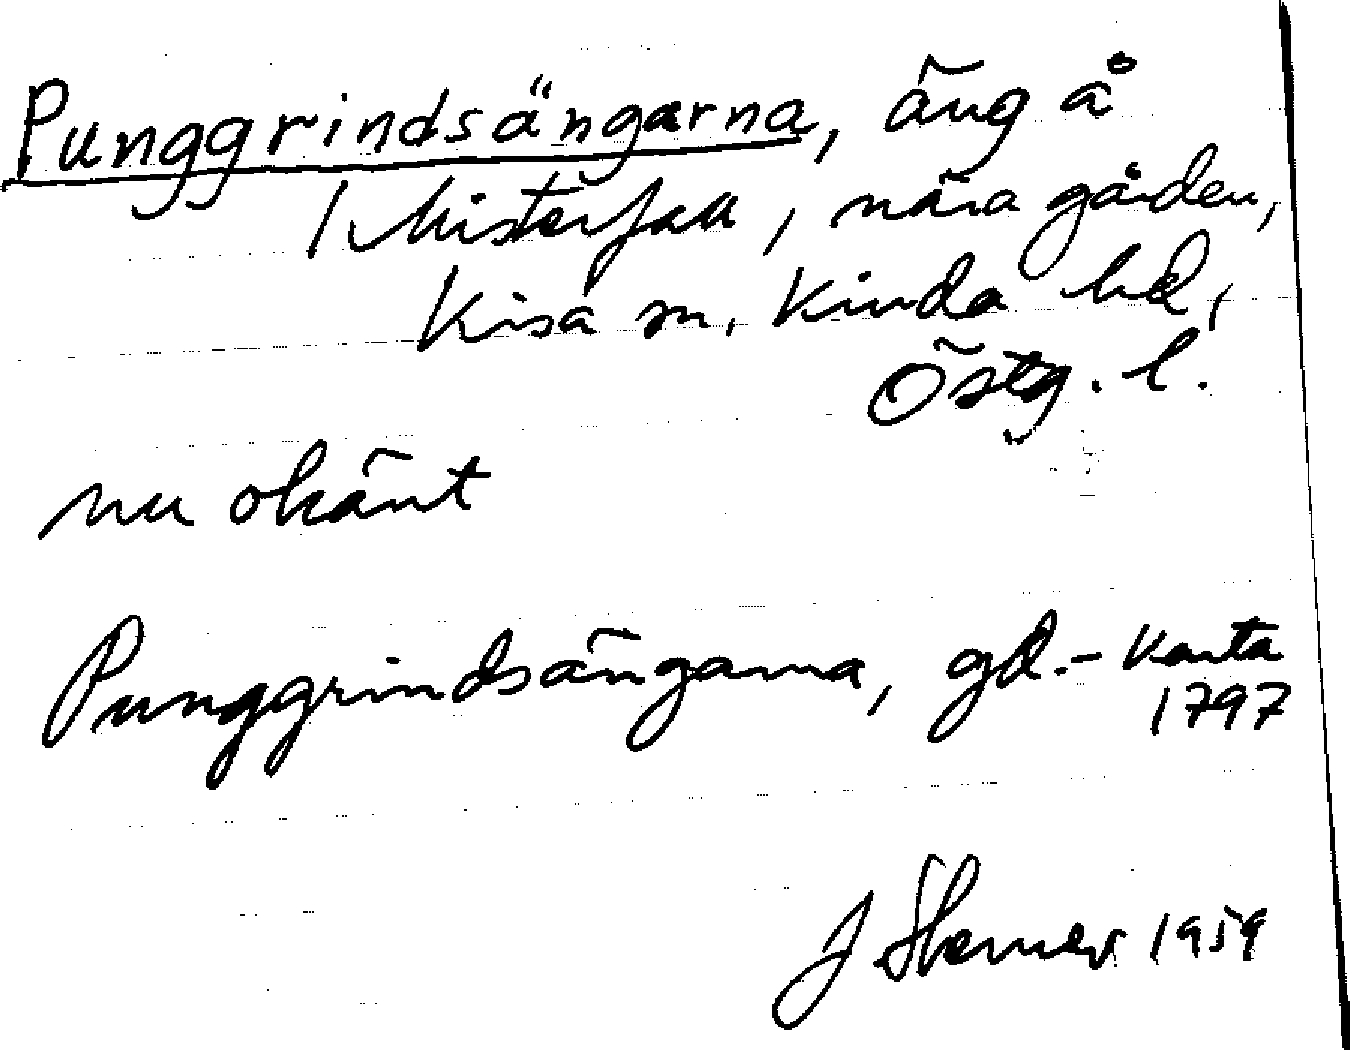 Punggrindsängarna, äng å
1 Misterfall, nära gården,
Kisa sn, Kinda hd,
Östg. l.
nu okänt
Punggrindsängarna, gd.- karta
1797
J 1959